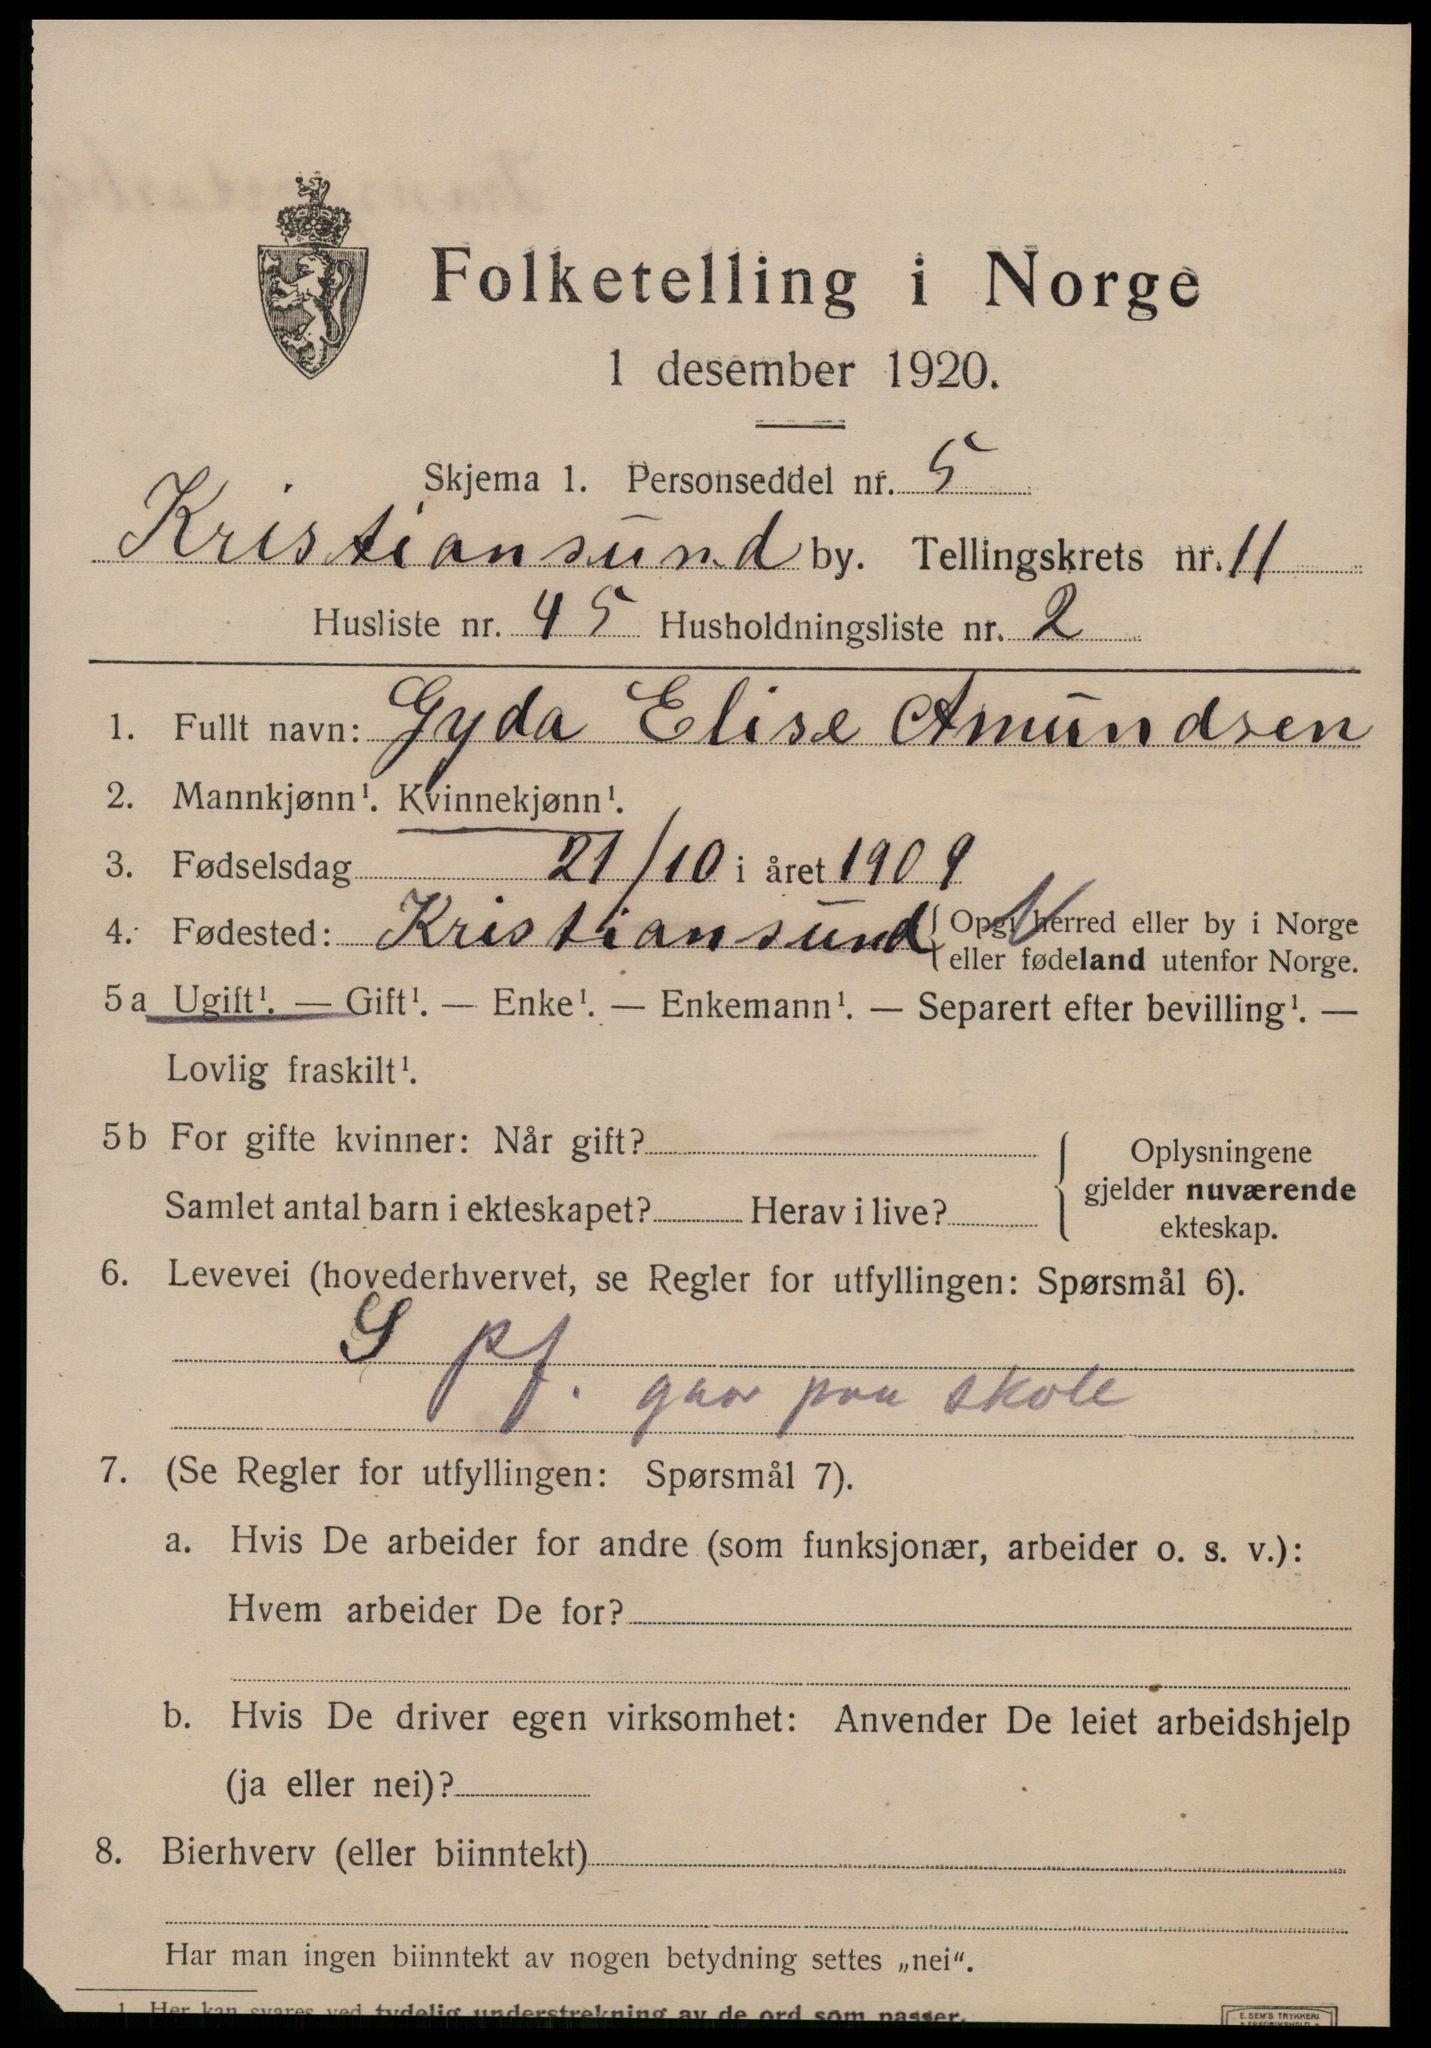 Folketelling i Norge
1 desember 1920.
Skjema 1. Personseddel nr. 5
Kristiansund by. Tellingskrets nr. 11
Husliste nr. 45 Husholdningsliste nr. 2
1. Fullt navn: Gyda Elise Amundsen
2. Mannkjønn¹. Kvinnekjønn¹.
3. Fødselsdag 21/10 i året 1909
4. Fødested: Kristiansund N { Opgi herred eller by i Norge
eller fødeland utenfor Norge.
5a Ugift¹. — Gift¹. — Enke¹. — Enkemann¹. — Separert efter bevilling¹. —
Lovlig fraskilt¹.
5b For gifte kvinner: Når gift? { Oplysningene
gjelder nuværende
Samlet antal barn i ekteskapet? Herav i live?
ekteskap.
6. Levevei (hovederhvervet, se Regler for utfyllingen: Spørsmål 6).
S pf.
gaar paa skole
7. (Se Regler for utfyllingen: Spørsmål 7).
a. Hvis De arbeider for andre (som funksjonær, arbeider o. s. v.):
Hvem arbeider De for?
b. Hvis De driver egen virksomhet: Anvender De leiet arbeidshjelp
(ja eller nei)?
8. Bierhverv (eller biinntekt)
Har man ingen biinntekt av nogen betydning settes „nei“.
1 Her kan svares ved tydelig understrekning av de ord som passer.
E. SEM'S TRYKKERI
FREDRIKSHALD